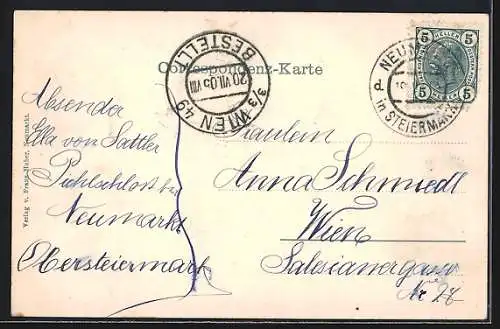 Correspondenz-Karte
Absenda
Ella von Sattler
Pichlschloss bei
Neumarkt
Obersteiermark
Fräulein
Anna Schmiedl
Wien
Salesianergasse
Nr 27
Verlag v. Franz Huber, Neumarkt.
3/3 WIEN 49
20.VII.05 VIII
BESTELLT
5 HELLER 5
5 5
NEUM
in STEIERMARK